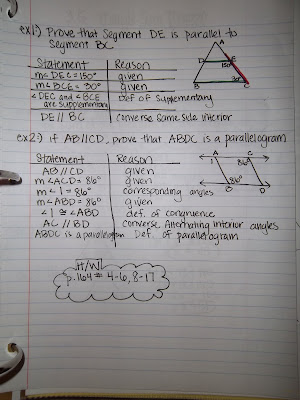 ex1:) Prove that Segment DE is parallel to
Segment BC
Statement Reason
m∠DEC=150° given
m∠BCE = 30° given
∠DEC and ∠BCE are supplementary Def of Supplementary
DE // BC converse same side interior
A
D E
150°
30°
B C
ex2:) if AB//CD, prove that ABDC is a parallelogram
Statement Reason
AB//CD given
m∠ACD = 86° given
m∠1 = 86° corresponding angles
m∠ABD = 86° given
∠1 ≅ ∠ABD def. of congruence
AC // BD converse Alternating interior angles
ABDC is a parallelogram Def. of parallelogram
A C
86°
86°
B D
H/W
p.164# 4-6, 8-17